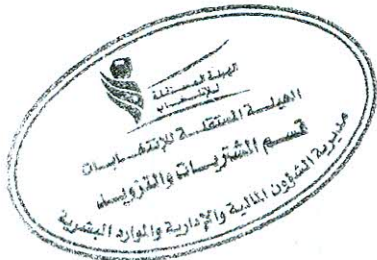 الهيئة المستقلة
للانتخاب
الهيئة المستقلة للإنتخابات
قسم المشتريات والتزويد
مديرية الشؤون المالية والإدارية والموارد البشرية